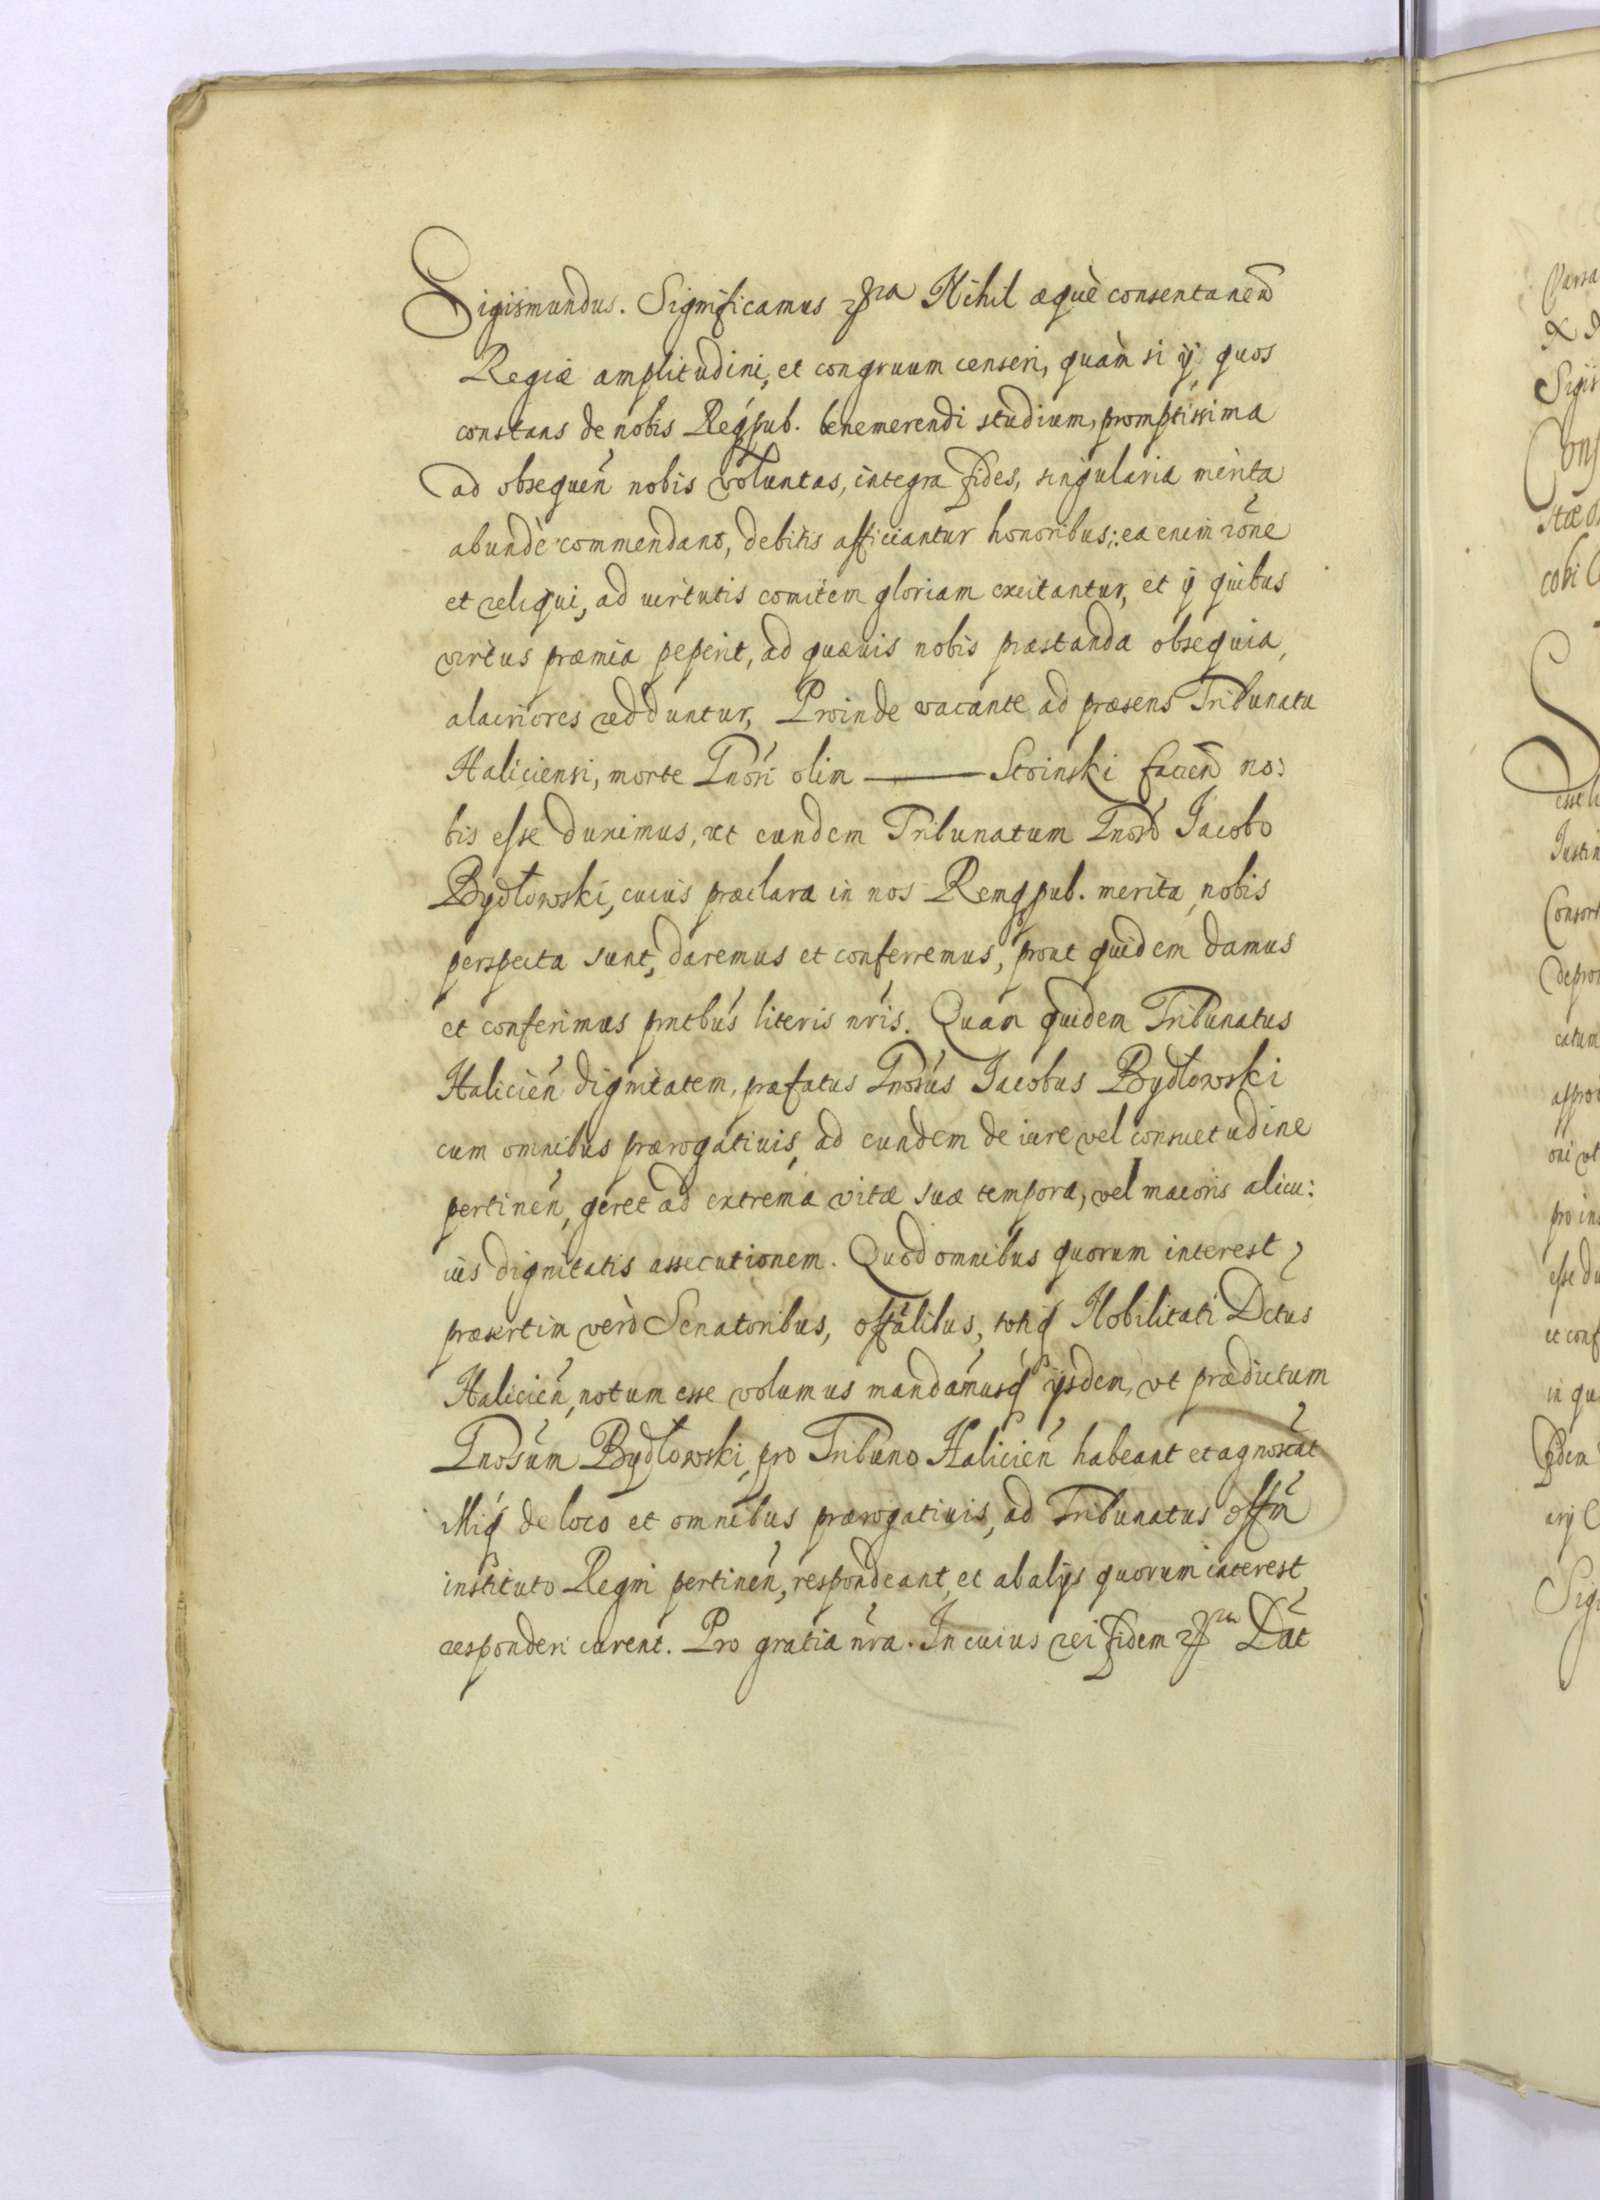 Sigismundus. Significamus Nihil æquè consentaneũ
Regiæ amplitudini, et congruum censeri, quàm si ij quos
constans de nobis Reqpub. benemerendi studium, promptissima
ad obsequen̄ nobis voluntas, integra fides, singularia merita
abundè commendant, debitis afficiantur honoribus; ea enim rõne
et reliqui, ad uirtutis comitem gloriam excitantur, et ij quibus
virtus præmia peperit, ad quæuis nobis præstanda obsequia,
alacriores redduntur, Proinde vacante ad præsens Tribunatu
Haliciensi, morte Gnõsi olim ——— Stoinski facien̄ no:
bis esse duximus, ut eundem Tribunatum Gnõso Jacobo
Bydłowski, cuius præclara in nos Remqpub. merita, nobis
perspecta sunt, daremus et conferremus, prout quidem damus
et conferimus pn̄tbus literis nr̃is. Quam quidem Tribunatus
Halicien̄ dignitatem, præfatus Gnõsus Jacobus Bydłowski
cum omnibus prærogatiuis, ad eundem de iure vel consuetudine
pertinen̄, geret ad extrema vitæ suæ tempora, vel maioris alicu:
ius dignitatis assecutionem. Quod omnibus quorum interest,
præsertim verò Senatoribus, offãlibus, totiq Nobilitati Dctus
Halicien̄, notum esse volumus mandamusq ijsdem, vt prædictum
Gnõsum Bydłowski, pro Tribuno Halicien̄ habeant et agnoscãt
Illiq de loco et omnibus prærogatiuis, ad Tribunatus offm̃
instituto Regni pertinen̄, respondeant, et ab alijs quorum interest
responderi curent. Pro gratia nr̃a. In cuius rei fidem Dãt